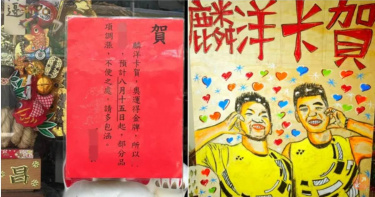 賀
麟洋卡賀,奧運得金牌,所以
,預計八月十五日起,部分品
項調漲,不便之處,請多包涵。
昌
麟洋卡賀